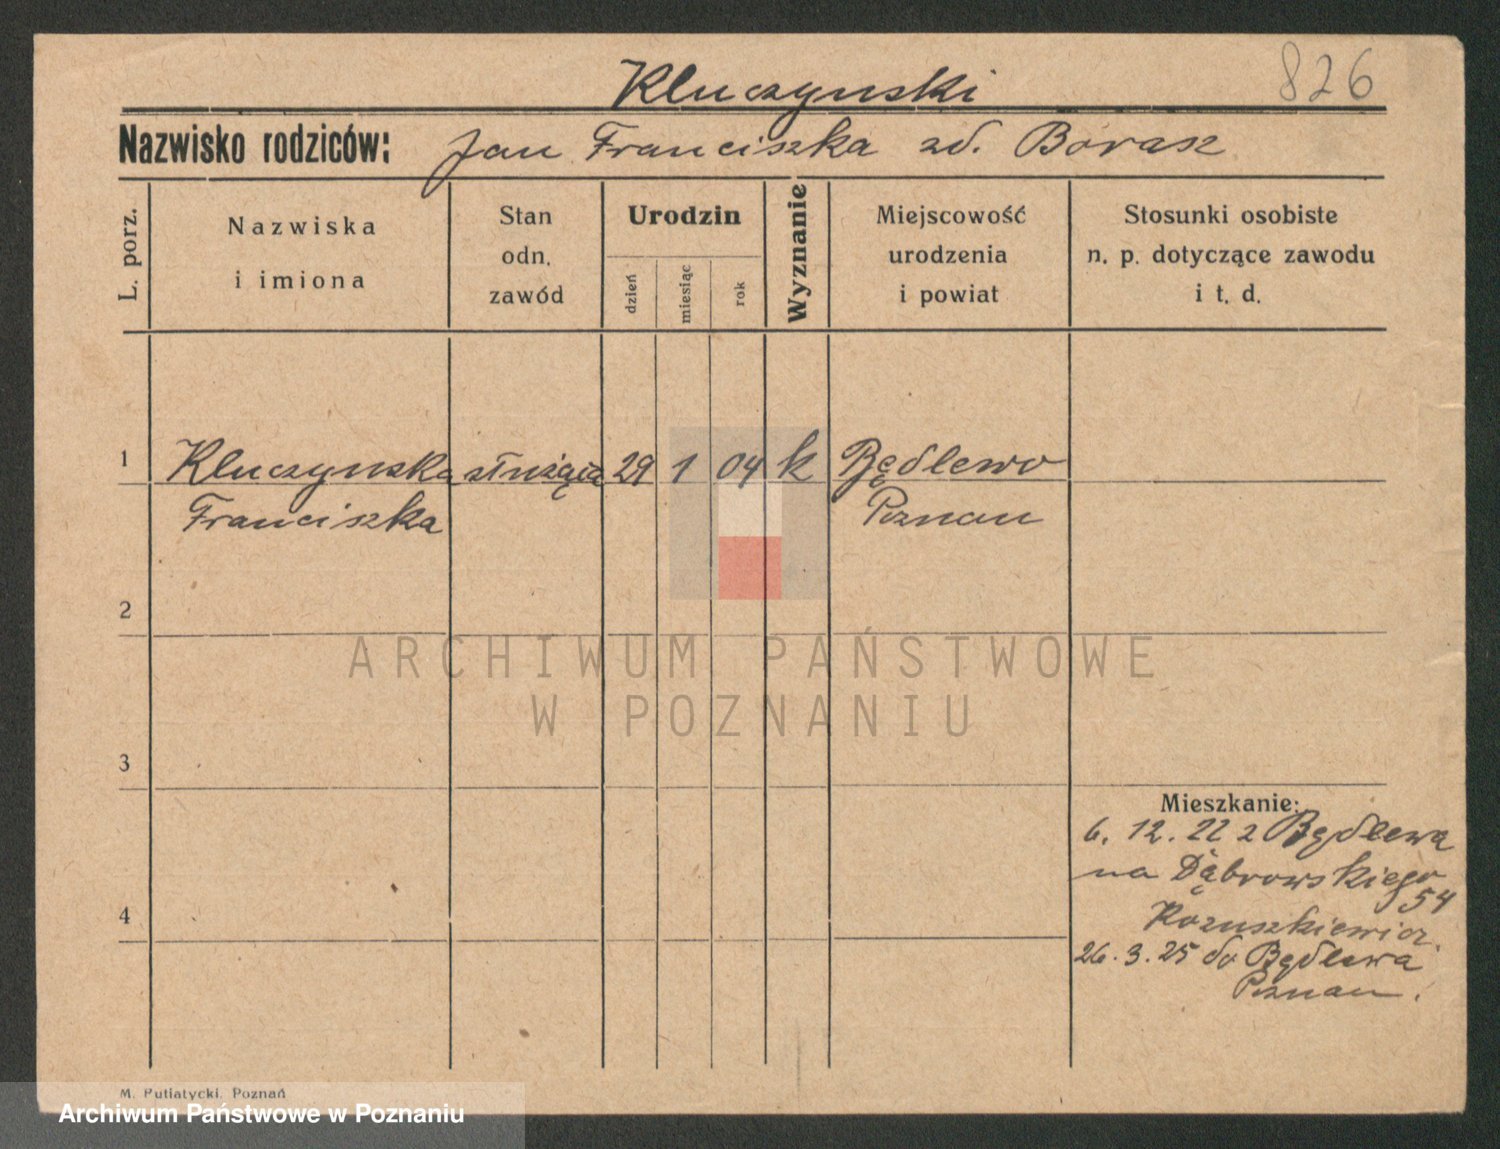 826
Kluczynski
Nazwisko rodziców: Jan Franciszka zd. Borasz
L. porz.
Nazwiska
i imiona
Stan
odn.
zawód
Urodzin
dzień
miesiąc
rok
Wyznanie
Miejscowość
urodzenia
i powiat
Stosunki osobiste
n. p. dotyczące zawodu
i t. d.
1 Kluczynska służąca 29 1 04 k Będlewo
Franciszka Poznan
2
ARCHIWUM PAŃSTWOWE
W POZNANIU
3
Mieszkanie:
6. 12. 22 z Będlewa
na Dąbrowskiego
54
4
26. 3. 25 do Będlewa
Poznan.
M. Putiatycki, Poznań
Archiwum Państwowe w Poznaniu